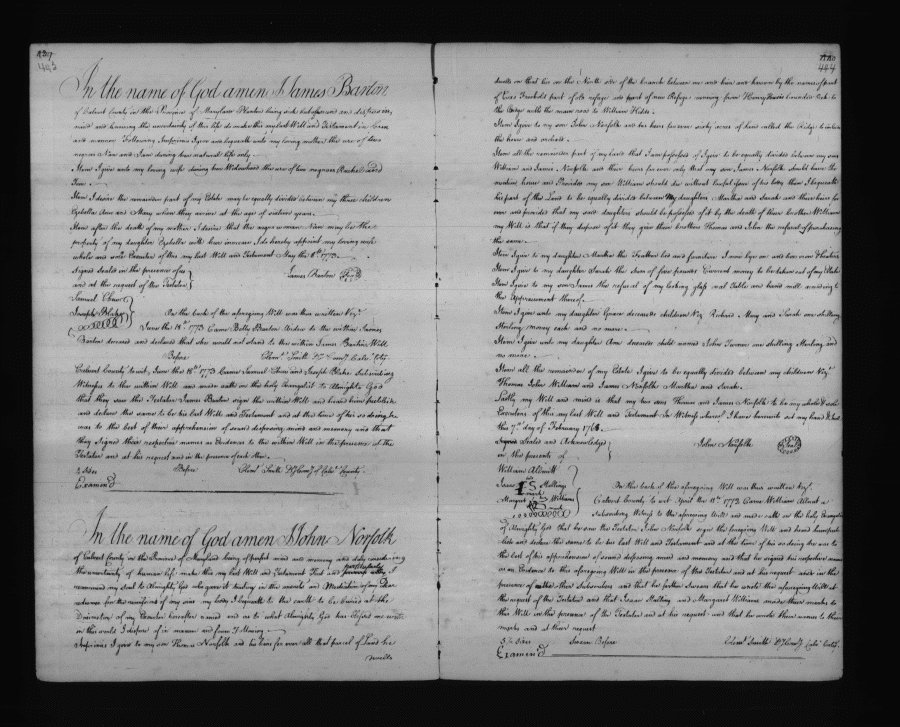 443
In the name of God amen I James Barton
of Calvert County in the Province of Maryland Planter being sick but of sound and
mind and knowing the uncertainty of this life do make this my last Will and Testament in
and manner Following Imprimis I give and bequeath unto my loving mother the use of two
negroes Nan and Sam during her natural life only
Item I give unto my loving wife during her Widowhood the use of two negroes Rachel and
Item I desire the remaining part of my Estate may be equally divided between my three children
Ann and Mary when they arrive at the age of sixteen years
Item after the death of my mother I desire that the negro woman Nan may be the
property of my daughter with her increase I do hereby appoint my loving wife
whole and sole Executrix of this my last Will and Testament May the 8th 1773
Signed Sealed in the presence of us
and at the request of the Testator
James Barton
Samuel Chew
Joseph Blake
On the back of the aforegoing Will was thus written Viz.
June the 18th 1773 Came Betty Barton widow to the within James
Barton deceased and declared that she would not stand to the within James Barton's Will
Before
Clem. Smith
Calvert County to wit, June the 18th 1773 Came Samuel Chew and Joseph Blake Subscribing
Witnesses to the within Will and made oath on the holy Evangelist of Almighty God
that they saw the Testator James Barton sign the within Will and heard him publish
and declare the same to be his last Will and Testament and at the time of his so doing he
was to the best of their apprehension of sound disposing mind and memory and that
they signed their respective names as Evidences to the within Will in the presence of the
Testator and at his request and in the presence of each other
Before
Clem. Smith
Examined
In the name of God amen I John Norfolk
of Calvert County in the Province of Maryland being of perfect mind and memory and duly considering
the uncertainty of human life make this my last Will and Testament First and principally
recommend my soul to Almighty God who gave it trusting in the merits and Mediation of my Dear
redeemer for the remission of my sins my body I bequeath to the earth to be buried at the
discretion of my Executors hereafter named and as to what Almighty God has blessed me with
in this world I dispose of in manner and form following
Imprimis I give to my son Thomas Norfolk and his heirs for ever all that parcel of land he
444
dwells on that lies on the North side of the branch between me and him and known by the name of part
of
the Ridge with the main road to William Hides
Item I give to my son John Norfolk and his heirs forever sixty acres of land called the Ridge to include
the house and orchard
Item all the remaining part of my land that I am possessed of I give to be equally divided between my sons
William and James Norfolk and their heirs forever only that my son James Norfolk should have the
mansion house and Provided my son William should die without lawful issue of his body then I bequeath
his part of this Land to be equally divided between my daughters Martha and Sarah and their heirs for
ever and provided that my said daughters should be possessed of it by the death of their brother William
my Will is that if they dispose of it they give their brothers Thomas and John the refusal of purchasing
the same
Item I give to my daughter Martha the Feather bed and furniture I now lye on
Item I give to my daughter Sarah the Sum of five pounds Current money to be taken out of my Estate
Item I give to my son James the refusal of my looking glass oval Table and hand mill according to
the Appraisement thereof
Item I give unto my daughter Grace deceased children Viz. Richard Mary and Sarah one shilling
Sterling money each and no more
Item I give unto my daughter Ann deceased child named John Turner one shilling Sterling and
no more
Item all the remainder of my Estate I give to be equally divided between my children Viz.
Thomas John William and James Norfolk Martha and Sarah
Lastly my Will and mind is that my two sons Thomas and James Norfolk to be my whole & sole
Executors of this my last Will and Testament In Witness whereof I have hereunto set my hand & Seal
this 7th day of February 1768
Signed Sealed and Acknowledged
in the presents of
John Norfolk
William
Isaac
Margret Williams
mark
On the back of the aforegoing Will was thus written Viz.
Calvert County to wit April the 1773 Came William
Subscribing Witness to the aforegoing Will and made oath on the holy Evangelist
of Almighty God that he saw the Testator John Norfolk sign the foregoing Will and heard him publish
and declare the same to be his last Will and Testament and at the time of his so doing he was to
the best of his apprehension of sound disposing mind and memory and that he signed his respective name
as an Evidence to the aforegoing Will in the presence of the Testator and at his request and in the
presence of the other Subscribers and that he further Swears that he wrote the aforegoing Will at
the request of the Testator and that Isaac and Margaret Williams made their marks to
this Will in the presence of the Testator and at his request and that he wrote their names to their
marks and at their request
Sworn Before
Clem. Smith
Examined